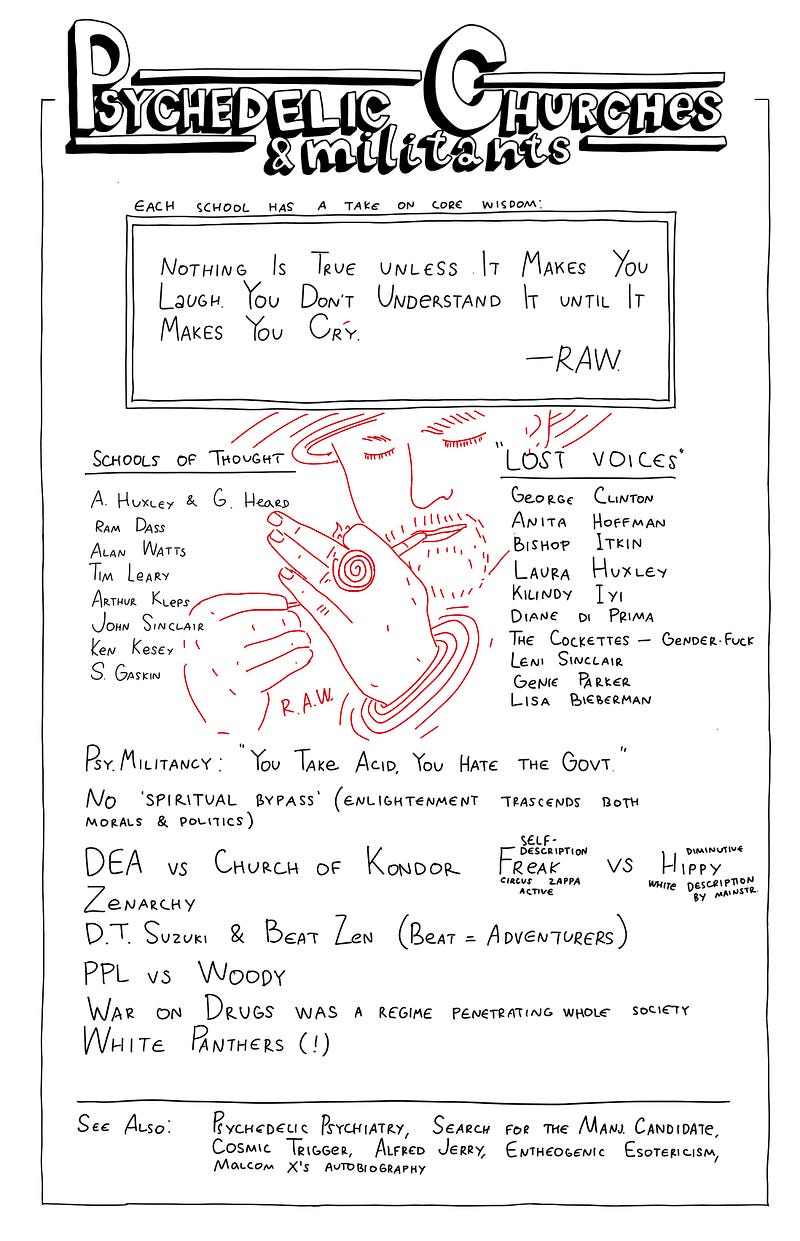 Psychedelic Churches
& militants
Each school has a take on core wisdom:
Nothing Is True unless It Makes You
Laugh. You Don't Understand It until It
Makes You Cry.
—RAW.
Schools of Thought
A. Huxley & G. Heard
Ram Dass
Alan Watts
Tim Leary
Arthur Kleps
John Sinclair
Ken Kesey
S. Gaskin
"Lost Voices"
George Clinton
Anita Hoffman
Bishop Itkin
Laura Huxley
Kilindy Iyi
Diane di Prima
The Cockettes — Gender-Fuck
Leni Sinclair
Genie Parker
Lisa Bieberman
R.A.W.
Psy. Militancy: "You Take Acid, You Hate the Govt."
No 'spiritual bypass' (enlightenment trascends both
morals & politics)
DEA vs Church of Kondor
Self-
Description
Freak
Circus Zappa
Active
vs
Diminutive
Hippy
White Description
by Mainstr.
Zenarchy
D.T. Suzuki & Beat Zen (Beat = Adventurers)
PPL vs Woody
War on Drugs was a regime penetrating whole society
White Panthers (!)
See Also: Psychedelic Psychiatry, Search for the Manj. Candidate,
Cosmic Trigger, Alfred Jerry, Entheogenic Esotericism,
Malcom X's autobiography